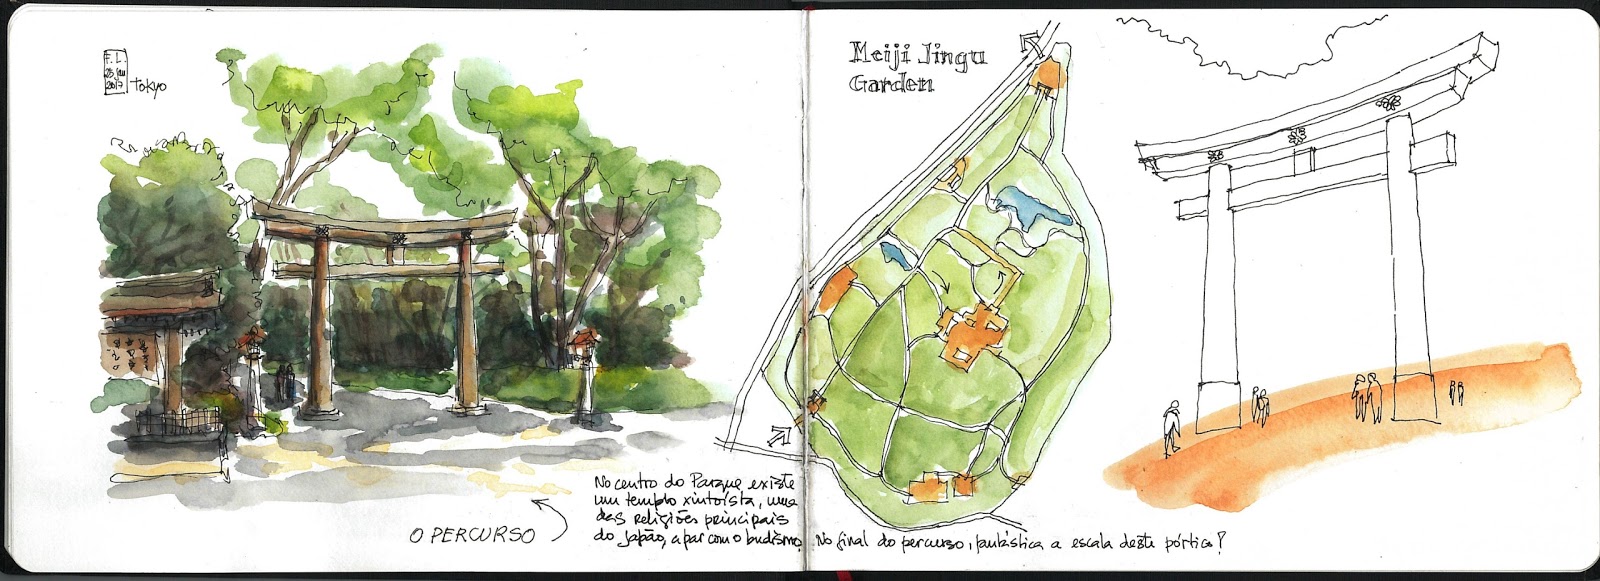 F.L.
2017
Tokyo
O PERCURSO
No centro do Parque existe
um templo xintoísta, uma
das religiões principais
do Japão, a par com o budismo.
Meiji Jingu
Garden
No final do percurso, fantástica a escala deste pórtico!